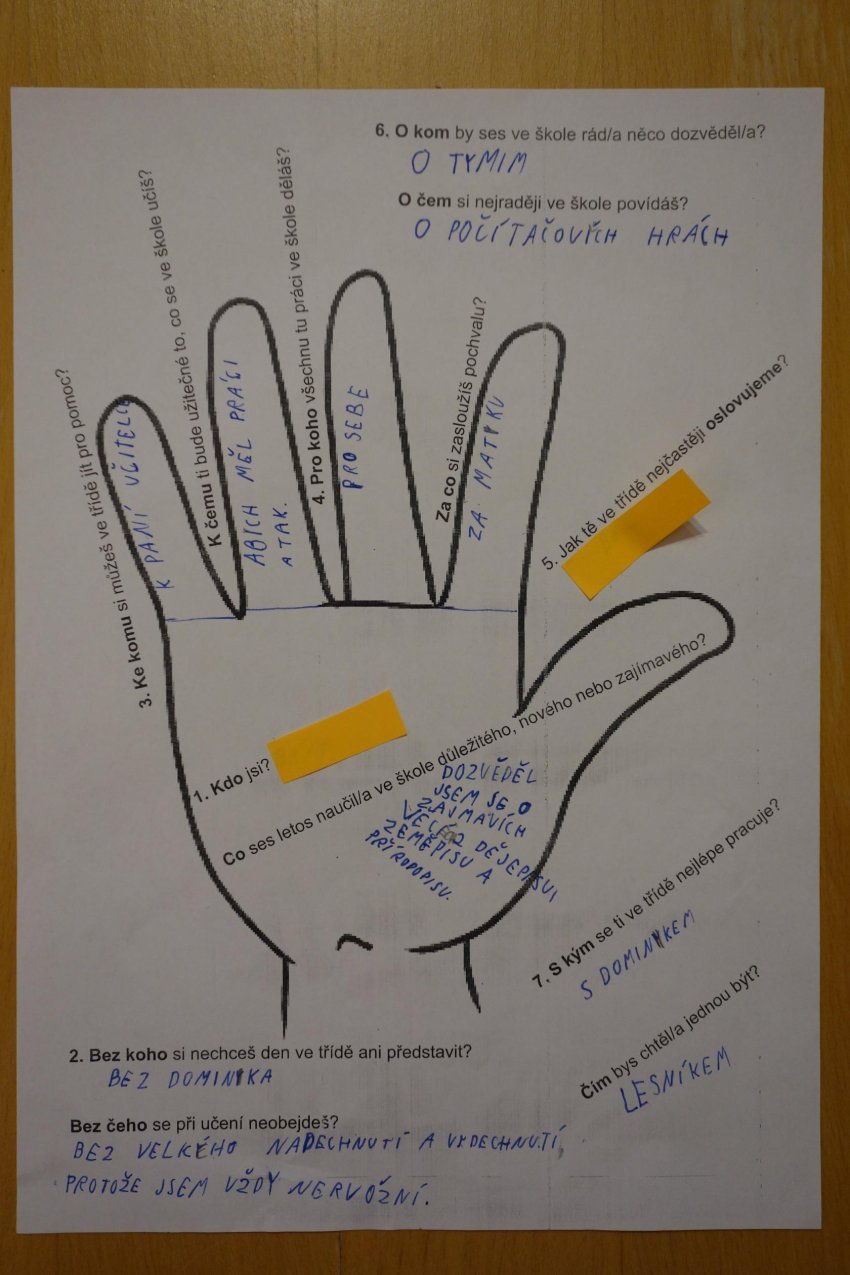 6. O kom by ses ve škole rád/a něco dozvěděl/a?
O TYMIM
O čem si nejraději ve škole povídáš?
O POČÍTAČOVÍCH HRÁCH
3. Ke komu si můžeš ve třídě jít pro pomoc?
K PANÍ UČITELCE
K čemu ti bude užitečné to, co se ve škole učíš?
ABICH MĚL PRÁCI
A TAK.
4. Pro koho všechnu tu práci ve škole děláš?
PRO SEBE
Za co si zasloužíš pochvalu?
ZA MATYKU
5. Jak tě ve třídě nejčastěji oslovujeme?
1. Kdo jsi?
Co ses letos naučil/a ve škole důležitého, nového nebo zajímavého?
DOZVĚDĚL
JSEM SE O
ZAJMAVÍCH
VĚCÍ Z DĚJEPISU,
ZEMĚPISU A
PŘÍRODOPISU.
7. S kým se ti ve třídě nejlépe pracuje?
S DOMINYKEM
Čím bys chtěl/a jednou být?
LESNÍKEM
2. Bez koho si nechceš den ve třídě ani představit?
BEZ DOMINIKA
Bez čeho se při učení neobejdeš?
BEZ VELKÉHO NADECHNUTÍ A VYDECHNUTÍ,
PROTOŽE JSEM VŽDY NERVOŽNÍ.